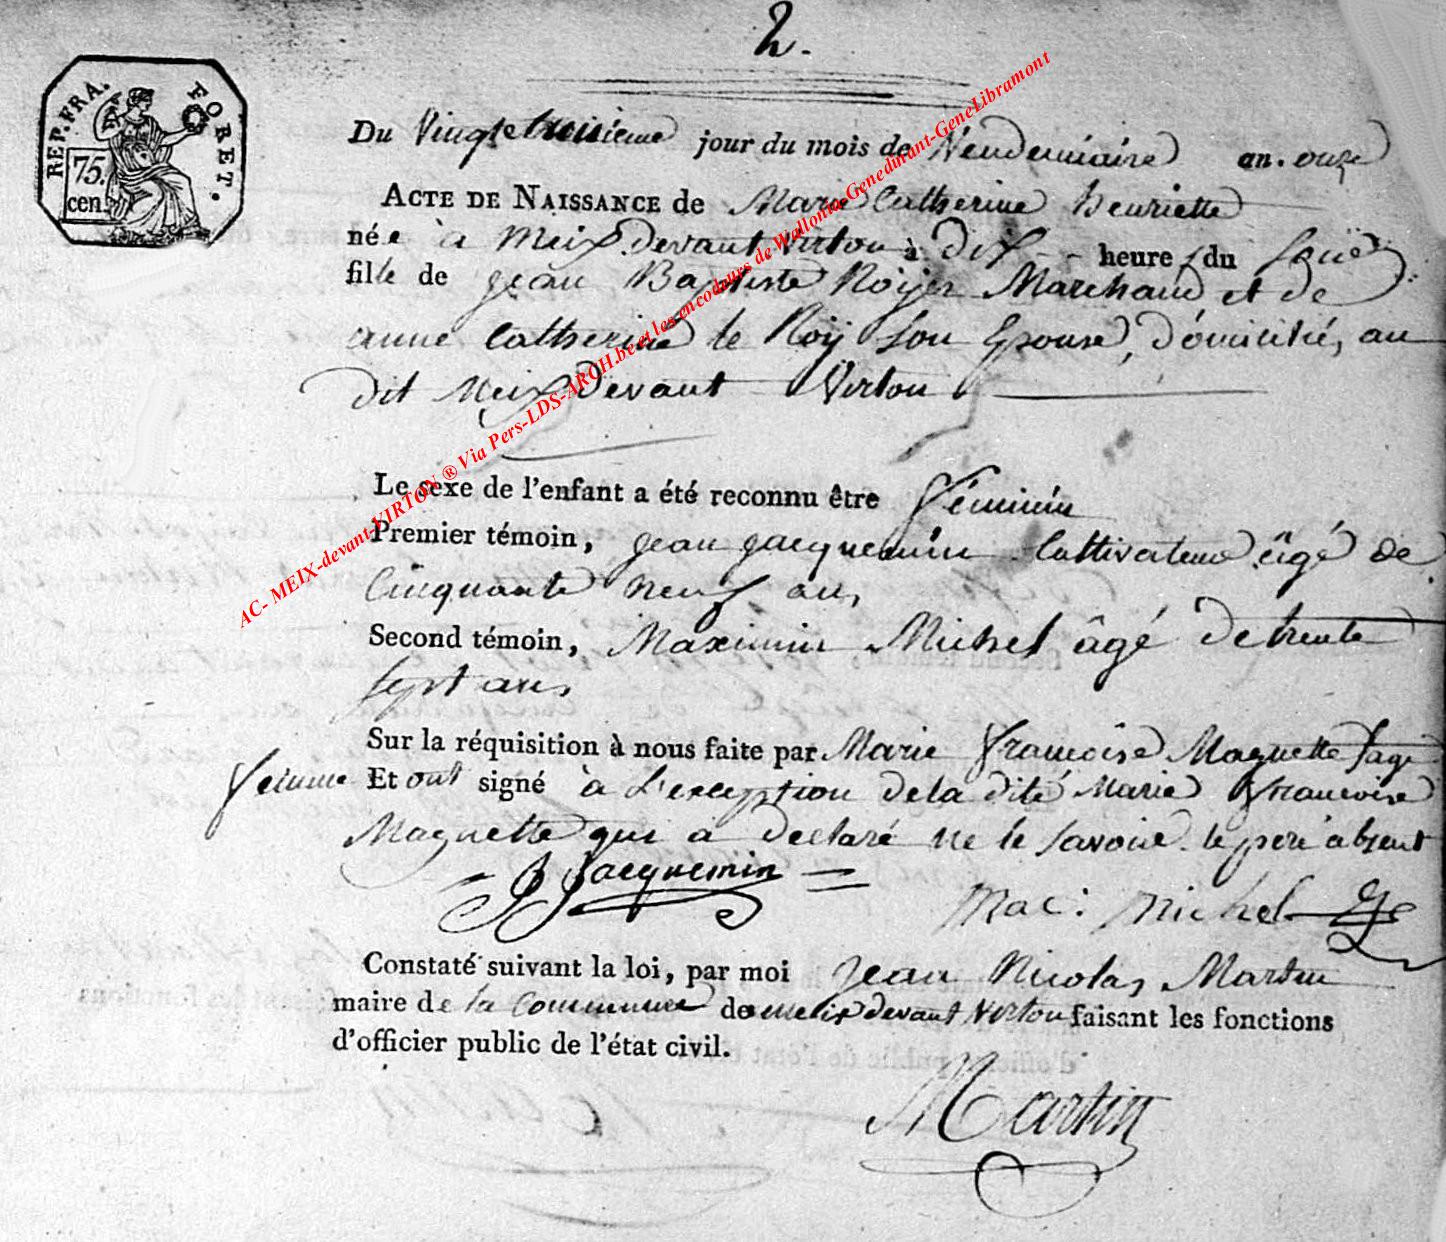 2.
REP. FRA. FORET.
75.
cen.
Du Vingt troisieme jour du mois de Vendemiaire an. onze
ACTE DE NAISSANCE de Marie Catherine henriette
née à Meix devant virton à dix heure du soir
fille de jean Baptiste Noÿer Marchand et de
anne Catherine le Roÿ son Epouse, domicilié, au
dit Meix devant Virton
Le sexe de l'enfant a été reconnu être féminin
Premier témoin, jean jacquemin Cultivateur âgé de
Cinquante neuf ans
Second témoin, Maximin Michel âgé de trente
sept ans
Sur la réquisition à nous faite par Marie françoise Maquette sage
femme Et ont signé à L'exception de la dite Marie françoise
Maquette qui a declaré ne le savoir. le pere absent
J Jacquemin
Mac: Michel
Constaté suivant la loi, par moi Jean Nicolas Martin
maire de la Commune de meix devant Virton faisant les fonctions
d'officier public de l'état civil.
Martin
AC- MEIX-devant-VIRTON ® Via Pers-LDS-ARCH.be et les encodeurs de Wallonia-Genedinant-GeneLibramont